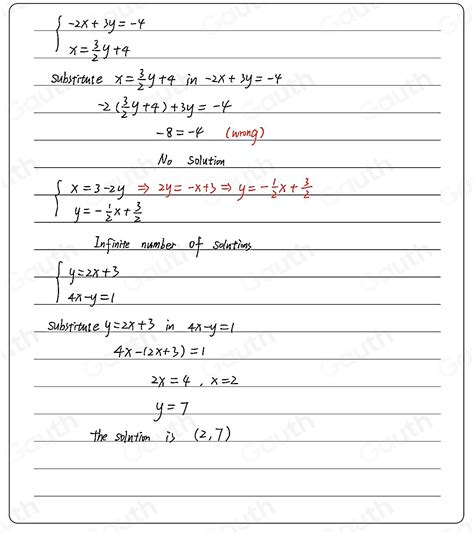 -2x + 3y = -4
x = 3/2 y + 4
substitute x = 3/2 y + 4 in -2x + 3y = -4
-2(3/2 y + 4) + 3y = -4
-8 = -4 (wrong)
No solution
x = 3 - 2y ⇒ 2y = -x + 3 ⇒ y = -1/2 x + 3/2
y = -1/2 x + 3/2
Infinite number of solutions
y = 2x + 3
4x - y = 1
substitute y = 2x + 3 in 4x - y = 1
4x - (2x + 3) = 1
2x = 4 , x = 2
y = 7
the solution is (2, 7)
Gauth